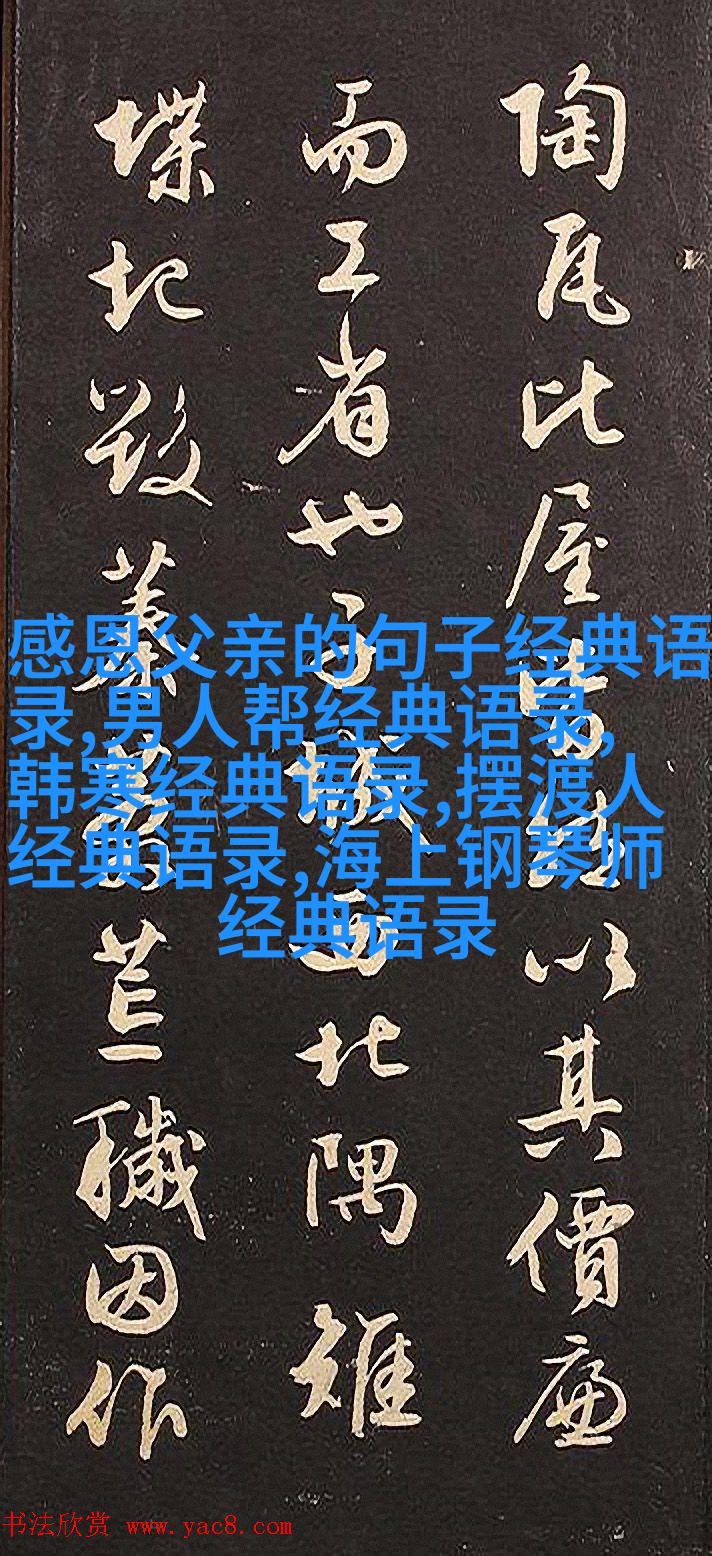 陶瓦比屋皆然以其價廉
而工省也子城西北隅雉
堞圮毀蓁莽荒穢因作
感恩父亲的句子经典语
录,男人帮经典语录,
韩寒经典语录,摆渡人
经典语录,海上钢琴师
经典语录
书法欣赏 www.yac8.com